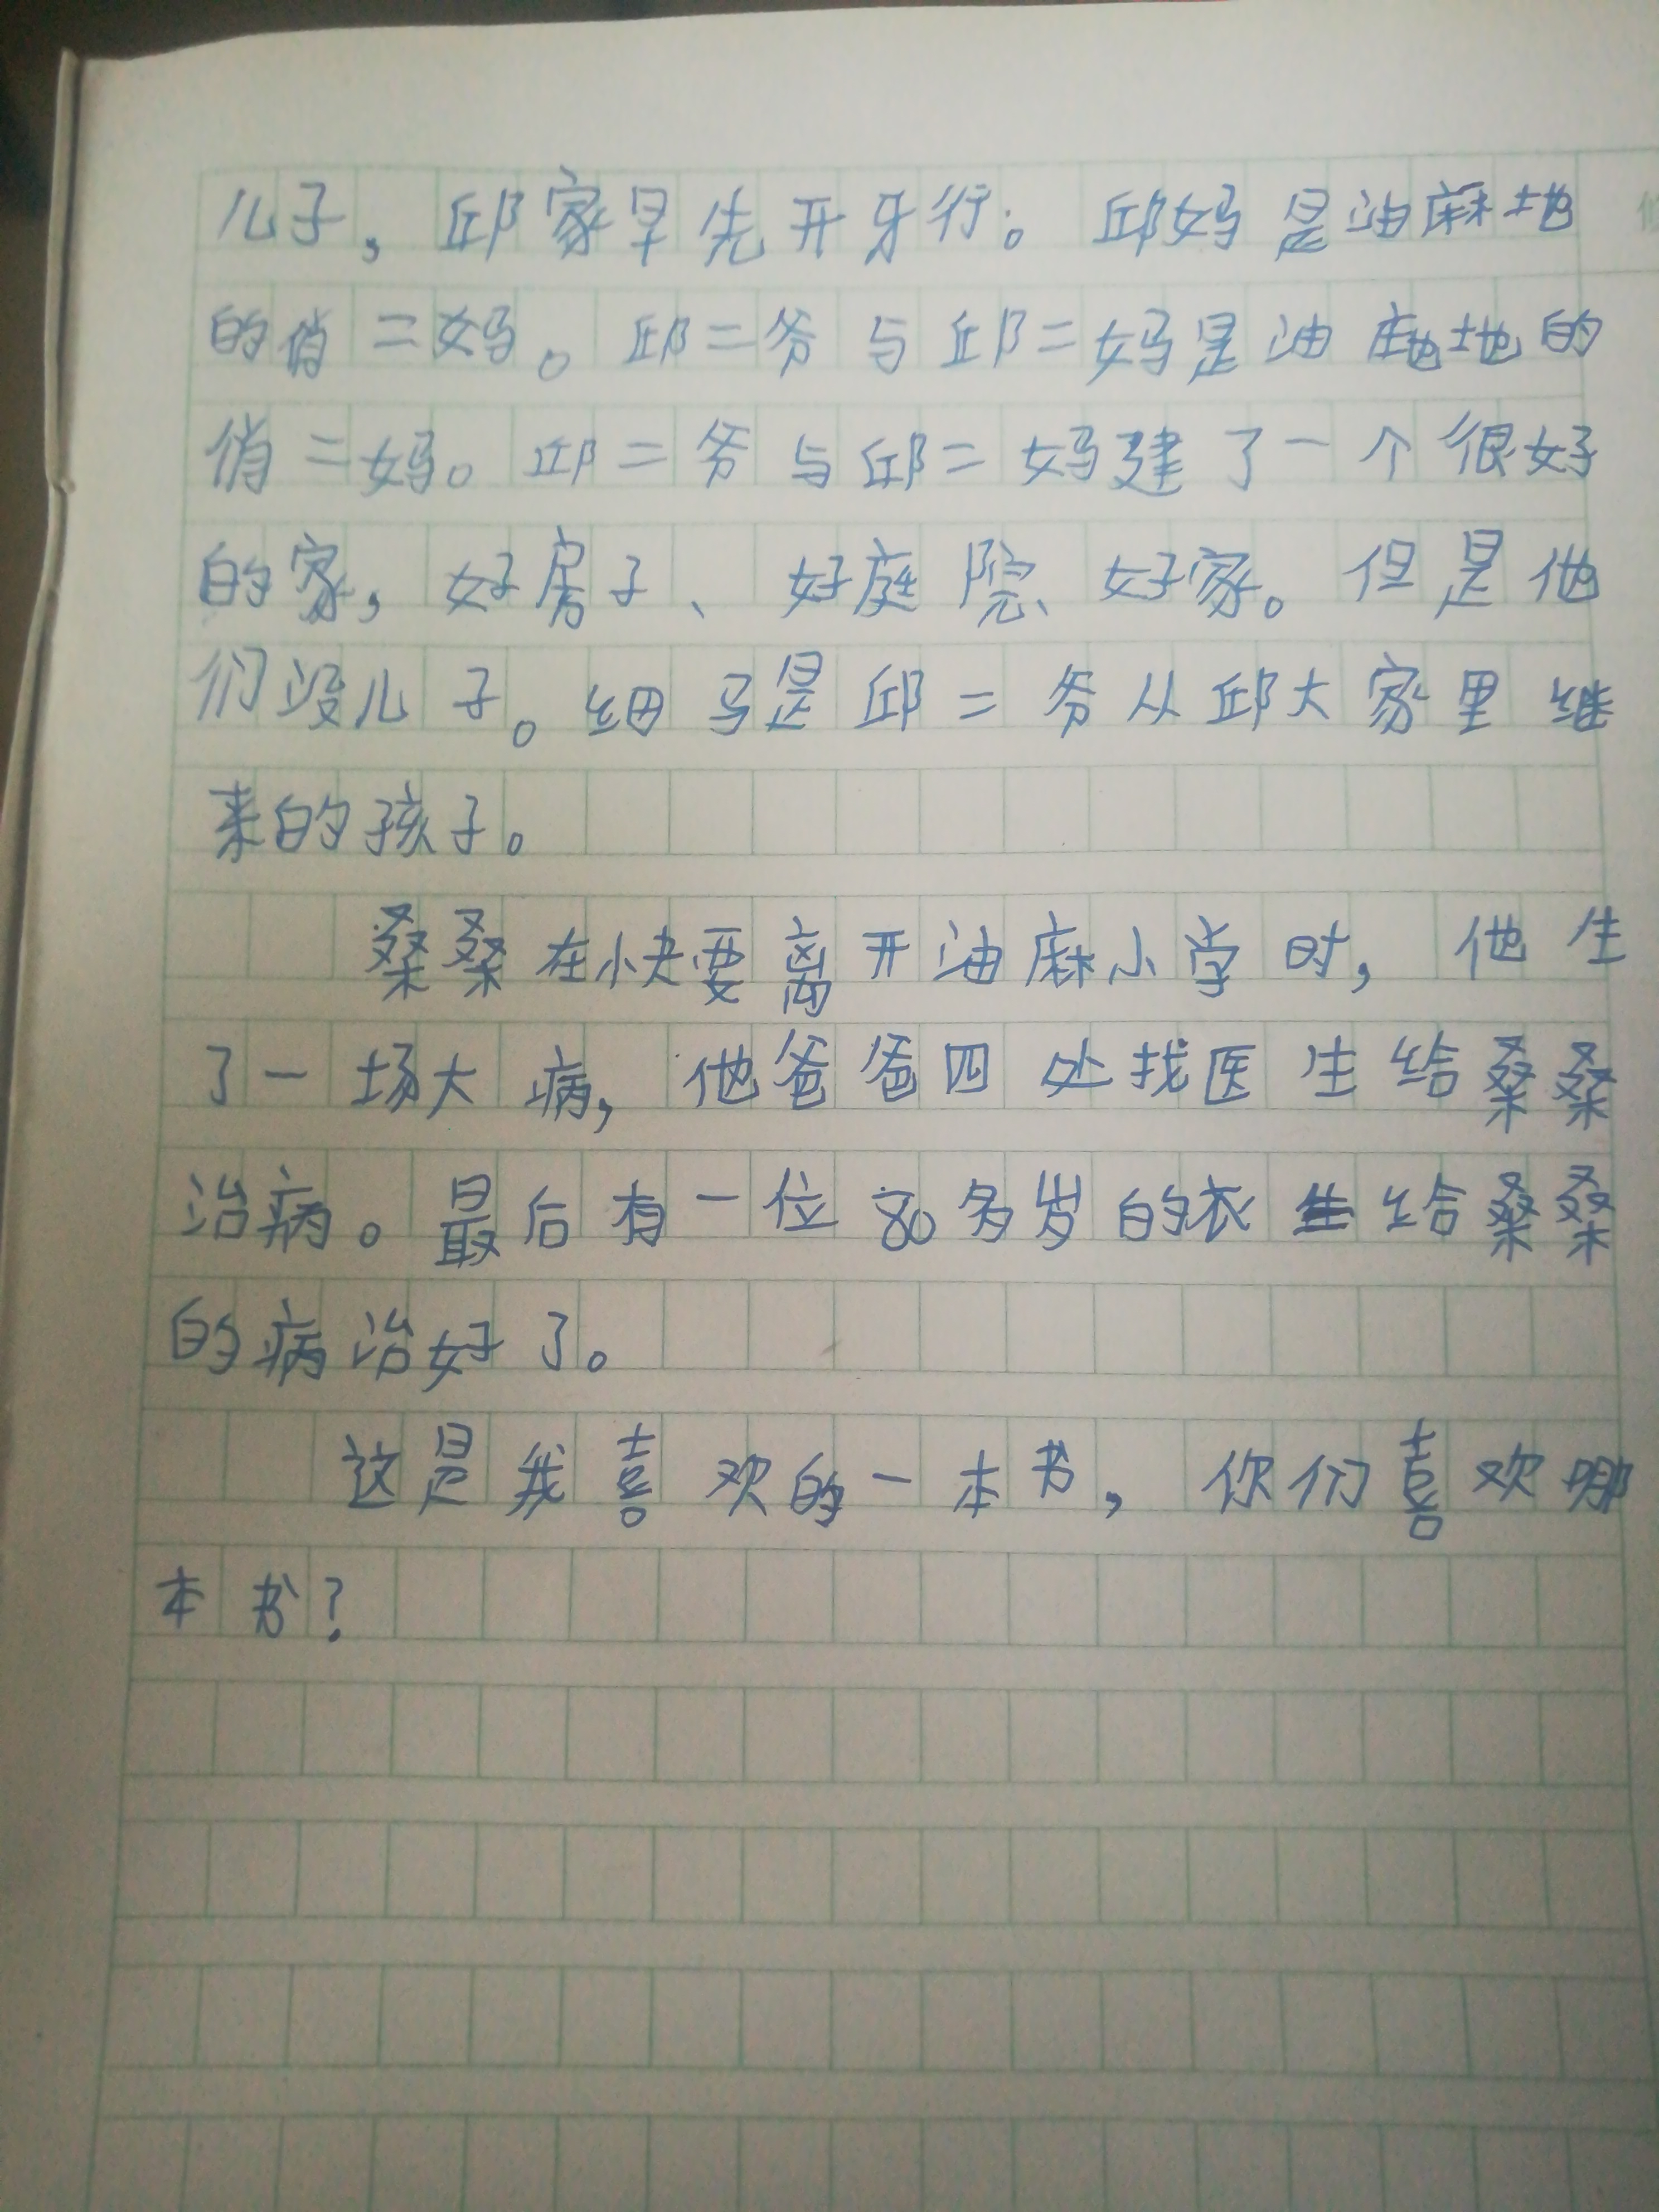 儿子，邱家早先开牙行。邱妈是油麻地
的俏二妈。邱二爷与邱二妈是油地地的
俏二妈。邱二爷与邱二妈建了一个很好
的家，好房子、好庭院、好家。但是他
们没儿子。细马是邱二爷从邱大家里继
来的孩子。
桑桑在快要离开油麻小学时，他生
了一场大病，他爸爸四处找医生给桑桑
治病。最后有一位80多岁的衣生给桑桑
的病治好了。
这是我喜欢的一本书，你们喜欢哪
本书？